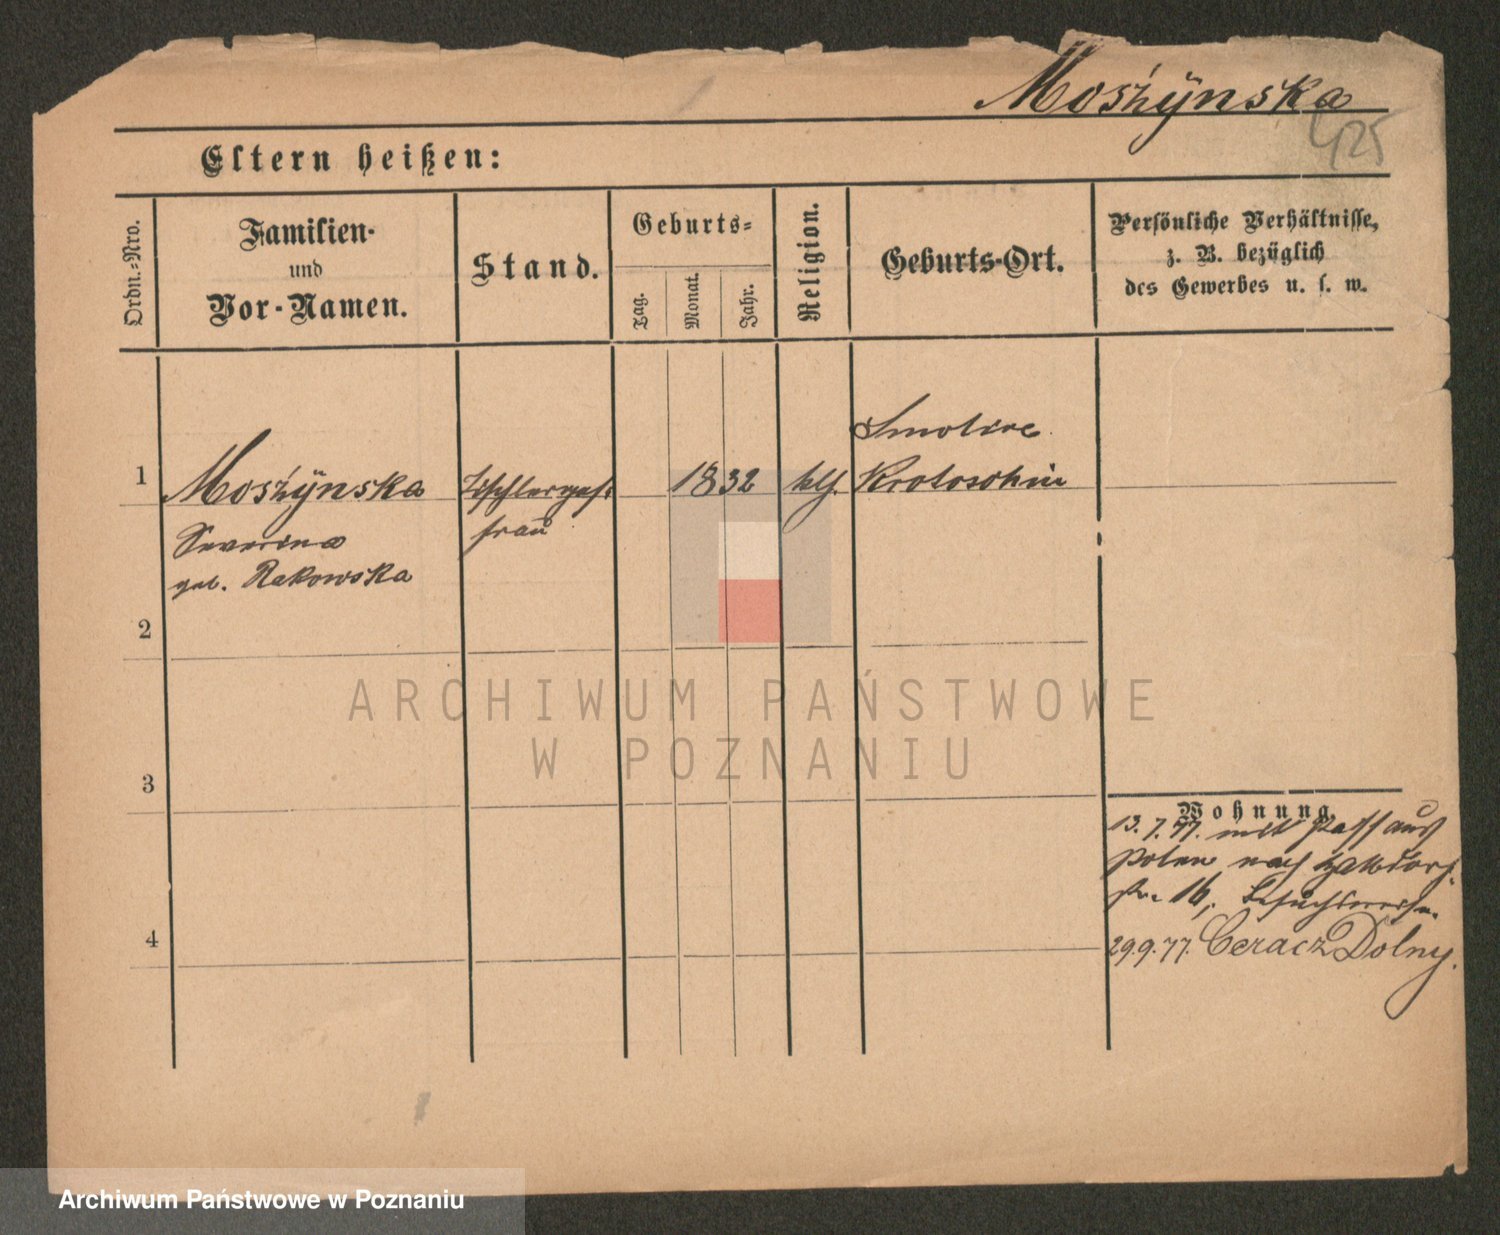 Mośżÿnska
425
Eltern heißen:
Ordn.-Nro.
Familien-
und
Vor-Namen.
Stand.
Geburts-
Tag.
Monat.
Jahr.
Religion.
Geburts-Ort.
Persönliche Verhältnisse,
z. B. bezüglich
des Gewerbes u. s. w.
Smolice
1 Mośżÿnska Tischlerges. 1832 ktl. Krotoschin
Severina frau
geb. Rakowska
2
ARCHIWUM PAŃSTWOWE
W POZNANIU
3
Wohnung
13.7.77. mit Pass aus
Polen nach
str. 16, besuchsweise.
4
29.9.77. Ceracz Dolny.
Archiwum Państwowe w Poznaniu